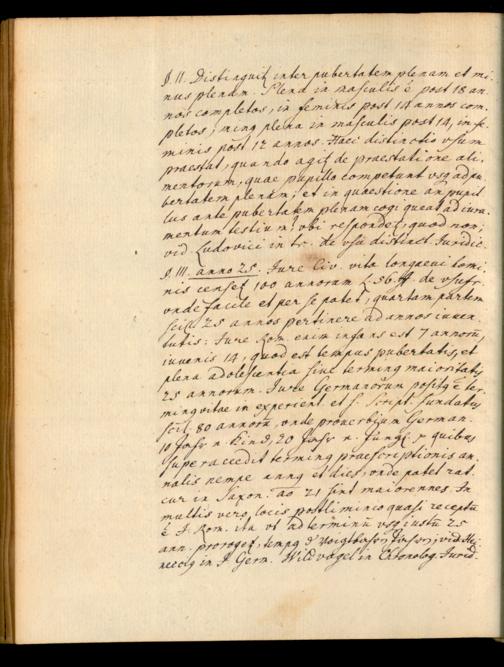 §. II. Distinguit inter pubertatem plenam et mi-
nus plenam. Plena in masculis ē post 18 an-
nos completos, in feminis post 14 annos com-
pletos; minq plena in masculis post 14, in fe-
minis post 12 annos. Haec distinctio vsum
praestat, quando agit de praestatione ali-
mentorum, quae pupillo competunt vsq ad pu-
bertatem plenam; et in quaestione an pupil-
lus ante pubertatem plenam cogi queat ad iura-
mentum testium? vbi respondet, quod non,
vid Ludovici in tr. de vsu distinct. Juridic.
§. III. anno 25. Jure Civ. vita longaevi homi-
nis censet 100 annorum L. 56. ff. de vsufr.
vnde facile et per se patet, quartam partem
scil. 25 annos pertinere ad annos iuven-
tutis: Jure Rom. enim infans est 7 annorū,
iuvenis 14, quod est tempus pubertatis, et
plena adolescentia sive terminq maioritatis
25 annorum. Jure Germanorum positq ē ter-
minq vitae in experient. et S. Script. fundatus
scil. 80 annorū, vnde proverbium German.
10 Jahr n. Kind, 20 Jahr n. Jüngl. quibus
super accedit terminq praescriptionis an-
nalis nempe annq et dies, vnde patet rat.
cur in Saxon. ao 21 sint maiorennes. In
multis vero locis postliminio quasi receptū
ē J. Rom. ita vt ad terminū vsq iustū 25
ann. proroget, vid. Hei-
neccig in J. Germ. Wildvogel in Chronolog. Jurid.